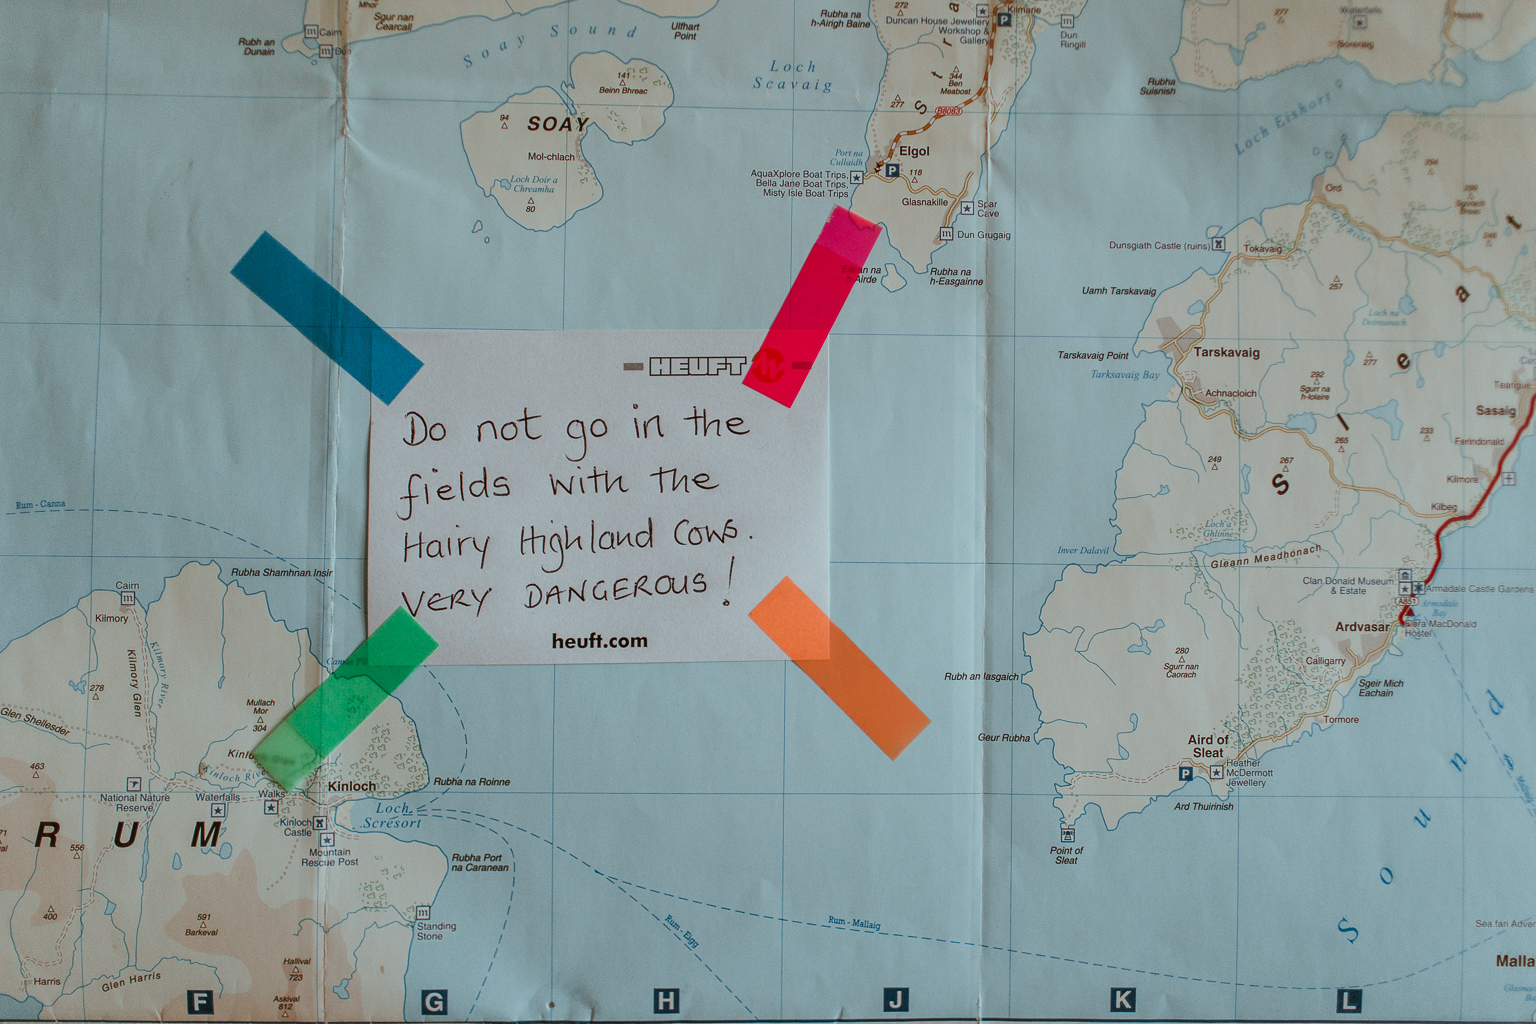 Mhor
Sgur nan
Cearcall
Rubh an
Dunain
Cairn
Dun
Ulfhart
Point
Soay Sound
Loch
Scavaig
Rubha na
h-Airigh Baine
272
Duncan House Jewellery
Workshop &
Gallery
Kilmarie
P
Dun
Ringill
277
Waterfalls
Boreraig
Heaste
Rubha
Suisnish
Loch Eishort
141
Beinn Bhreac
94
SOAY
Mol-chlach
Loch Doir a
Chreamha
80
344
Ben
Meabost
277
B8083
Elgol
Port na
Cullaidh
P
118
AquaXplore Boat Trips,
Bella Jane Boat Trips,
Misty Isle Boat Trips
Glasnakille
Spar
Cave
Dun Grugaig
Rubha na
h-Easgainne
na
Airde
Ord
254
Dunsgiath Castle (ruins)
Tokavaig
246
257
Uamh Tarskavaig
Tarskavaig Point
Tarskavaig Bay
Tarskavaig
Achnacloich
292
Sgurr na
h-Iolaire
277
Sasaig
Ferindonald
233
265
249
267
Kilmore
Kilbeg
HEUFT
Do not go in the
fields with the
Hairy Highland Cows.
VERY DANGEROUS!
heuft.com
Rum - Canna
Inver Dalavil
Loch a'
Ghlinne
Gleann Meadhonach
Clan Donald Museum
& Estate
Armadale Castle Gardens
A851
Armadale
Bay
Flora MacDonald
Hostel
Ardvasar
Calligarry
280
Sgurr nan
Caorach
Sgeir Mich
Eachain
Tormore
Rubh an Iasgaich
Geur Rubha
Aird of
Sleat
P
Heather
McDermott
Jewellery
Ard Thuirinish
Point of
Sleat
Rubha Shamhnan Insir
Cairn
Kilmory
Kilmory Glen
Kilmory River
278
Mullach
Mor
304
Glen Shellesder
463
Kinloch River
National Nature
Reserve
Waterfalls
Walks
Kinloch
Rubha na Roinne
Loch
Scresort
Kinloch
Castle
Mountain
Rescue Post
RUM
556
Rubha Port
na Caranean
400
591
Barkeval
Standing
Stone
Harris
Glen Harris
Hallival
723
Askival
812
Rum - Eigg
Rum - Mallaig
Sound
Sea.fan Adven
Malla
F G H J K L